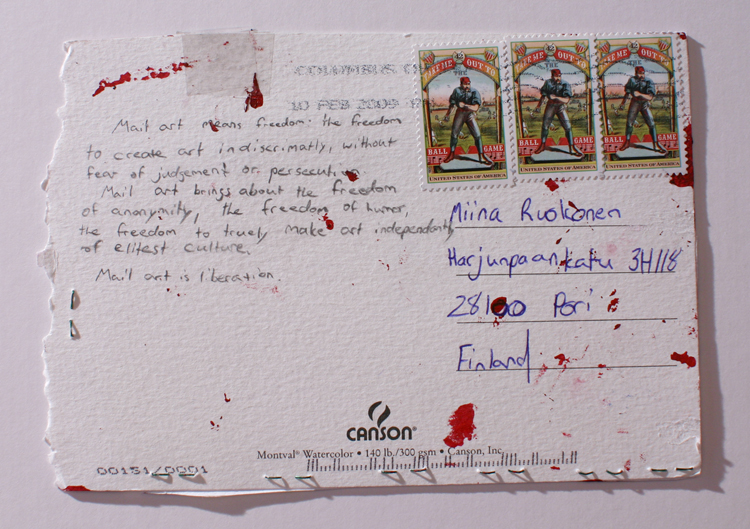 COLUMBUS
10 FEB 2009
TAKE ME OUT TO
THE
BALL GAME
UNITED STATES OF AMERICA
42 OUT TO
THE
BALL GAME
UNITED STATES OF AMERICA
ME OUT TO
THE
BALL GAME
UNITED STATES OF AMERICA
Mail art means freedom: the freedom
to create art indiscrimatly, without
fear of judgement or persecution
Mail art brings about the freedom
of anonymity, the freedom of humor,
the freedom to truely make art independantly
of elitest culture.
Mail art is liberation.
Miina Ruokonen
Harjunpaankatu 3H118
28100 Pori
Finland
CANSON®
Montval® Watercolor • 140 lb./300 gsm • Canson, Inc.
00151/0001